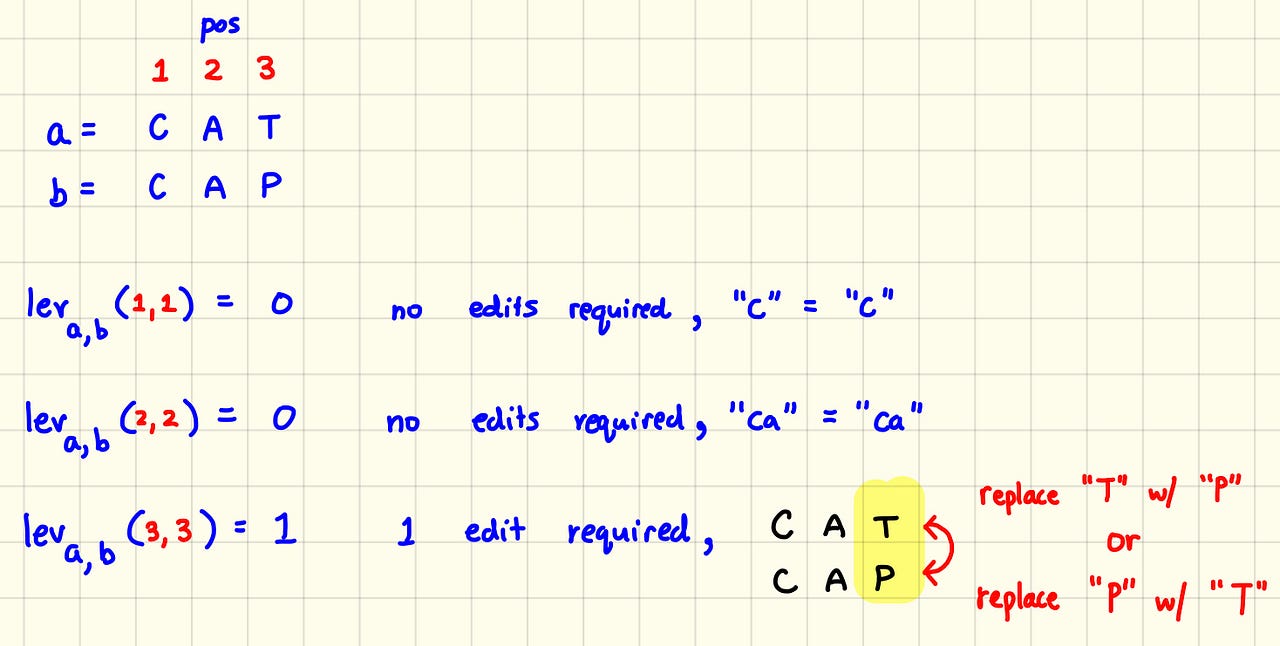 pos
1 2 3
a = C A T
b = C A P
lev a,b (1,1) = 0 no edits required, "C" = "C"
lev a,b (2,2) = 0 no edits required, "Ca" = "Ca"
lev a,b (3,3) = 1 1 edit required,
C A T
C A P
replace "T" w/ "P"
or
replace "P" w/ "T"